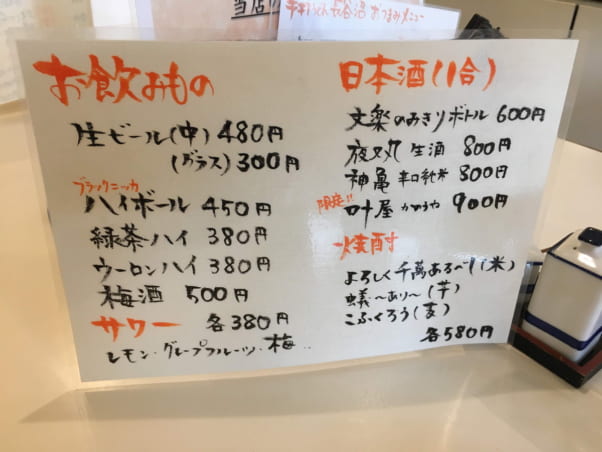 当店
おつまみメニュー
お飲みもの
生ビール(中) 480円
(グラス) 300円
ブラックニッカ
ハイボール 450円
緑茶ハイ 380円
ウーロンハイ 380円
梅酒 500円
サワー 各380円
レモン・グレープフルーツ・梅..
日本酒(1合)
文楽のみきりボトル 600円
夜叉丸 生酒 800円
神亀 辛口純米 800円
限定!! 叶屋 かのうや 900円
焼酎
よろしく千萬あるべし(米)
蟻〜あり〜(芋)
こふくろう(麦)
各580円